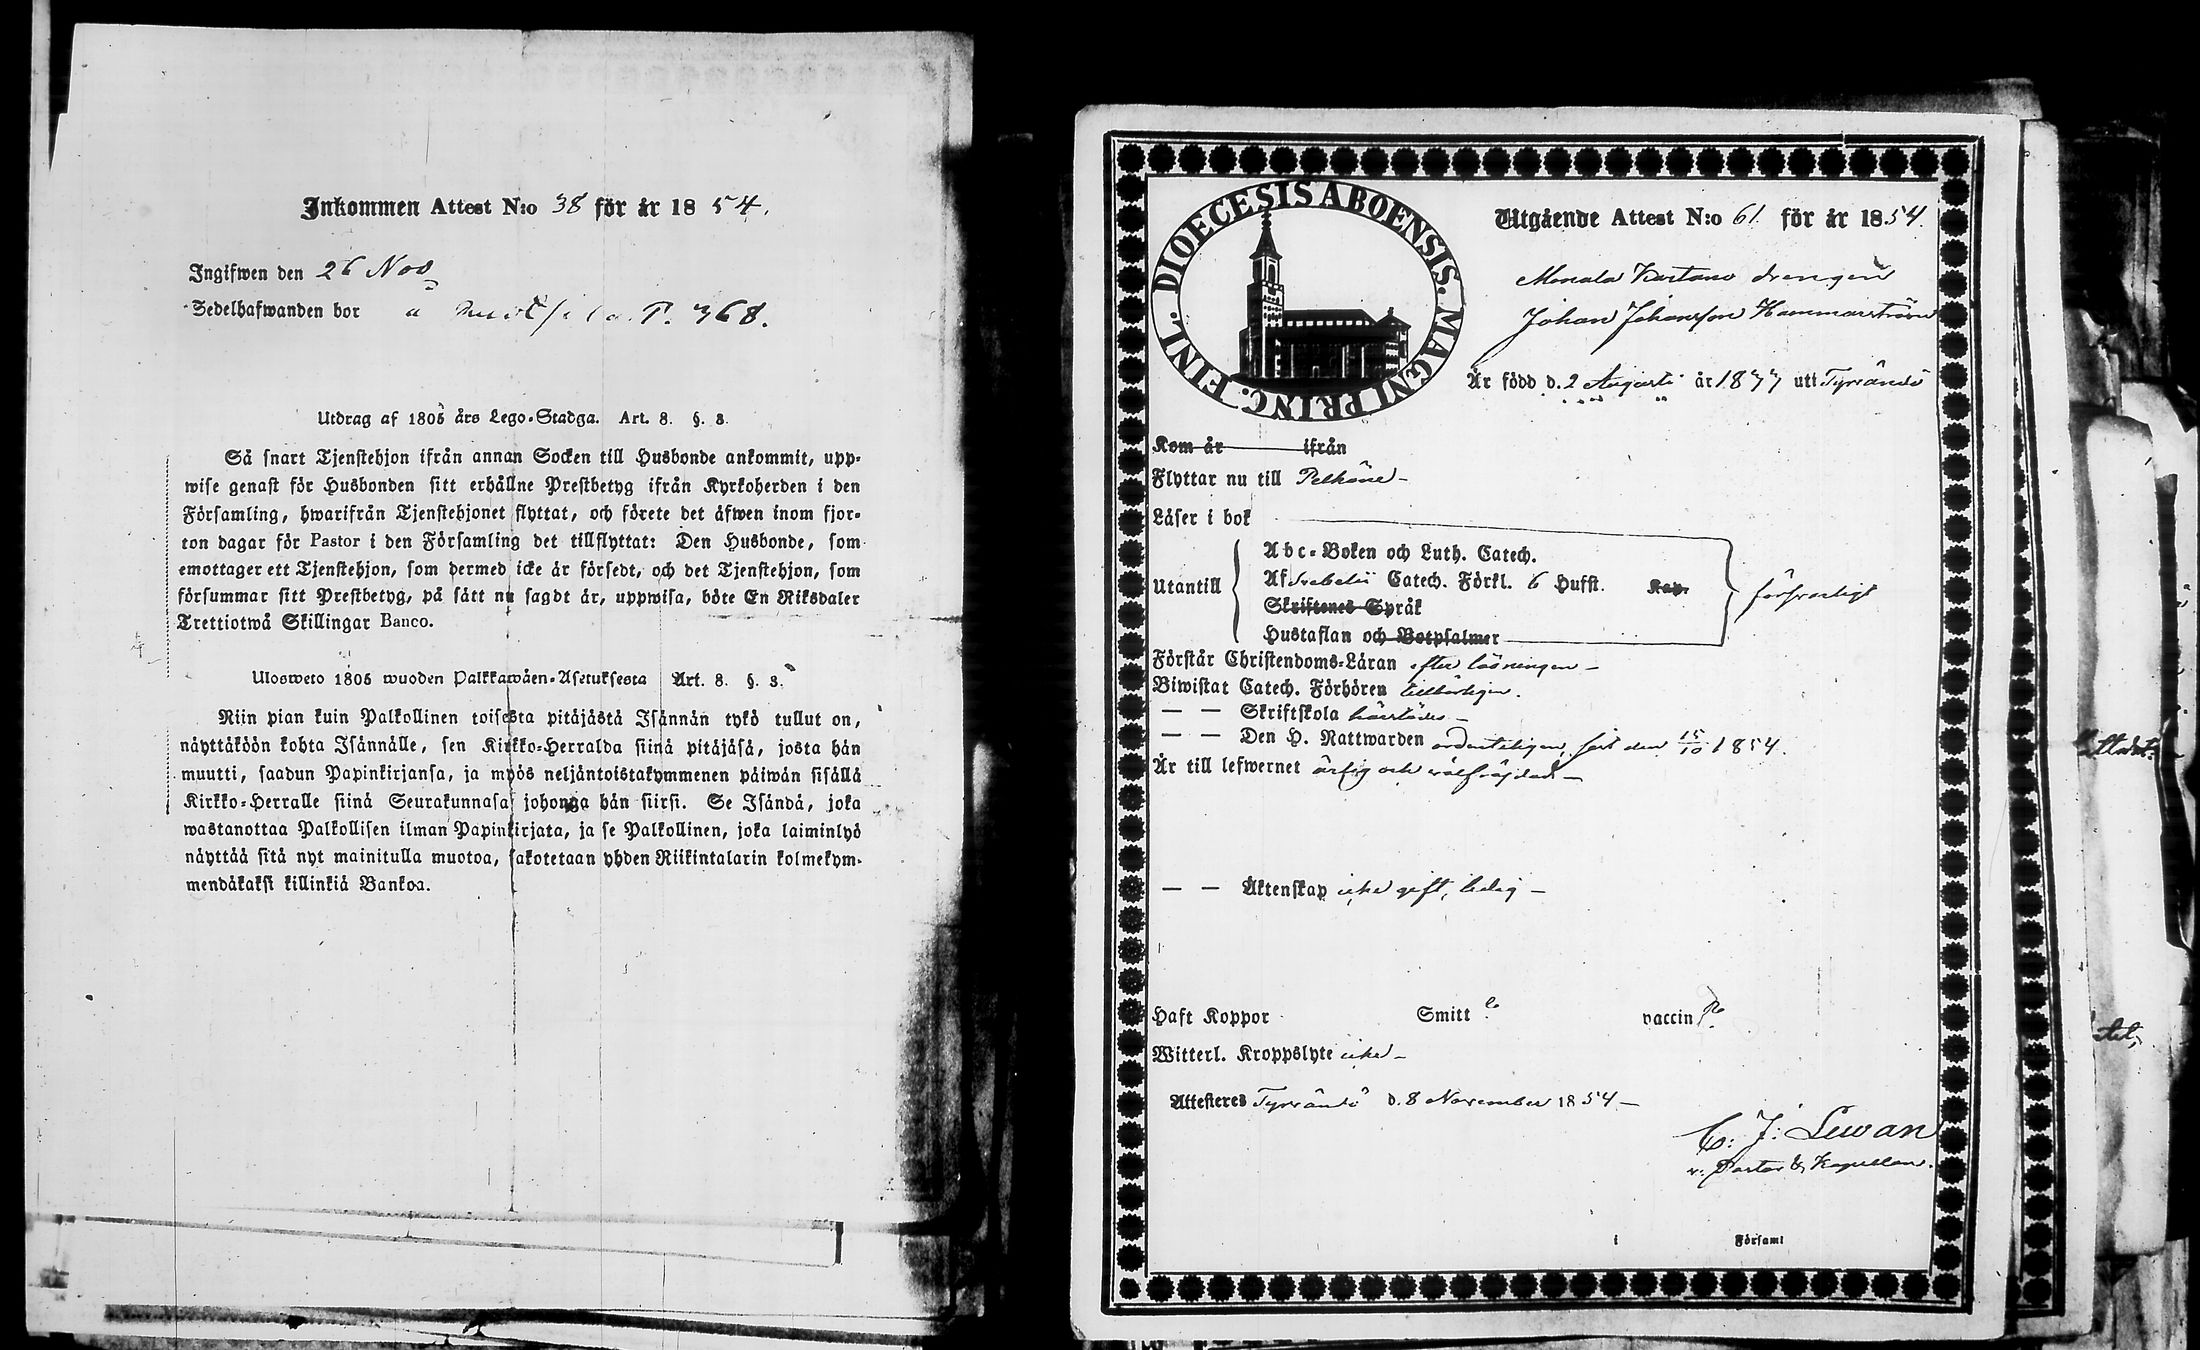 Inkommen Attest N:o 38 för år 1854.
Ingifwen den 26 Nov
Sedelhafwanden bor a P. 368.
Utdrag af 1805 års Lego-Stadga. Art. 8. §. 3.
Så snart Tjenstehjon ifrån annan Socken till Husbonde ankommit, upp-
wise genast för Husbonden sitt erhållne Prestbetyg ifrån Kyrkoherden i den
Församling, hwarifrån Tjenstehjonet flyttat, och förete det äfwen inom fjor-
ton dagar för Pastor i den Församling det tillflyttat: Den Husbonde, som
emottager ett Tjenstehjon, som dermed icke är försedt, och det Tjenstehjon, som
försummar sitt Prestbetyg, på sätt nu sagdt är, uppwisa, böte En Riksdaler
Trettiotwå Skillingar Banco.
Ulosweto 1805 wuoden Palkkawäen-Asetuksesta Art. 8. §. 3.
Niin pian kuin Palkollinen toisesta pitäjästä Isännän tykö tullut on,
näyttäköön kohta Isännälle, sen Kirkko-Herralda siinä pitäjäsä, josta hän
muutti, saadun Papinkirjansa, ja myös neljäntoistakymmenen päiwän sisällä
Kirkko-Herralle siinä Seurakunnasa johonga hän siirsi. Se Isändä, joka
wastanottaa Palkollisen ilman Papinkirjata, ja se Palkollinen, joka laiminlyö
näyttää sitä nyt mainitulla muotoa, sakotetaan yhden Riikintalarin kolmekym-
mendäkaksi killinkiä Bankoa.
DIOECESIS ABOENSIS. MAGNI PRINC. FINL.
Utgående Attest N:o 61 för år 1854.
Monala Kartano drengen
Johan Johansson Hammarström
Är född d. 2 Augusti år 1833 uti Tyrväntö
Kom år ifrån
Flyttar nu till Pelkäne -
Läser i bok
Abc-Boken och Luth. Catech.
Utantill Af Svebelii Catech. Förkl. 6 Hufst. Kap. försvarligt
Skriftenes Språk
Hustaflan och Botpsalmer
Förstår Christendoms-Läran efter läsningen -
Biwistat Catech. Förhören tillbörligen.
— — Skriftskola härstädes -
— — Den H. Nattwarden ordenteligen, sist den 15/10 1854.
Är till lefwernet ärlig och välfrejdad -
— — Äktenskap icke gift, ledig -
Haft Koppor Smitt vaccin
Witterl. Kroppslyte icke -
Attesteres Tyrväntö d. 8 November 1854 -
C: J: Lewan
v. Pastor & Kapellan.
i Församl